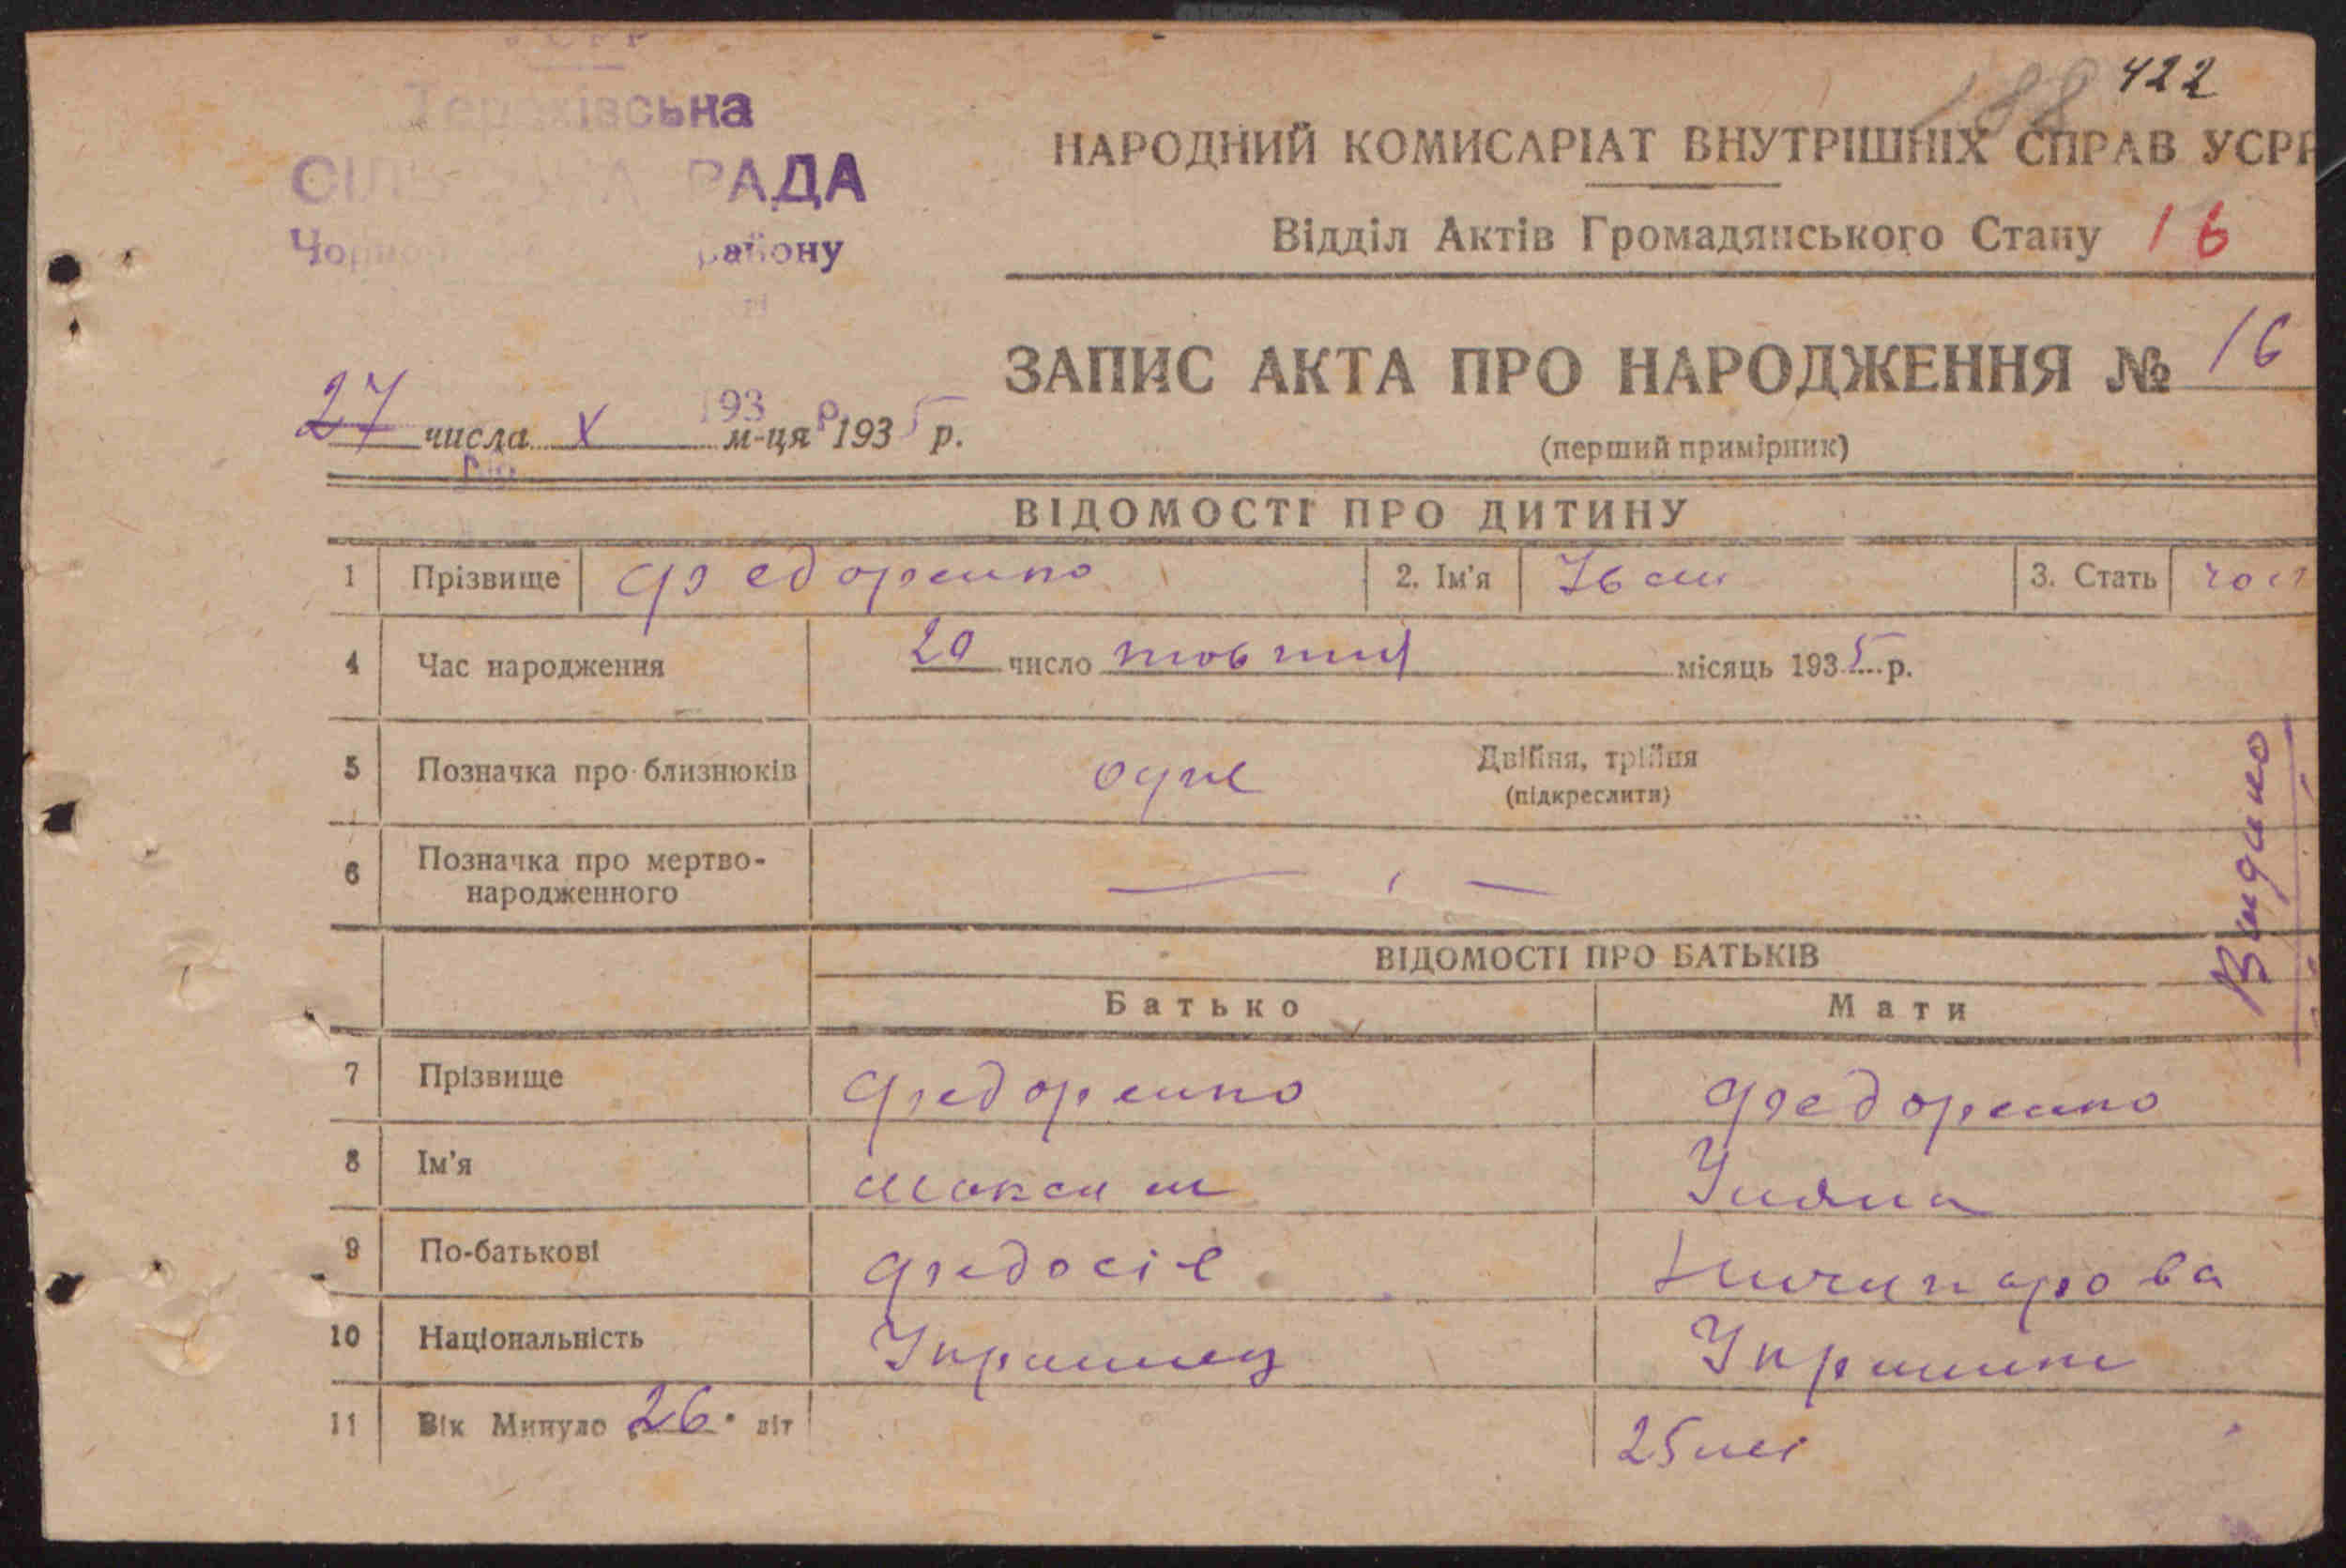 УСРР
Терехівська
СІЛЬСЬКА РАДА
району
188 422
НАРОДНИЙ КОМИСАРІАТ ВНУТРІШНІХ СПРАВ УСРР
Відділ Актів Громадянського Стану 16
ЗАПИС АКТА ПРО НАРОДЖЕННЯ № 16
(перший примірник)
27 числа X м-ця 1935 р.
193 р
ВІДОМОСТІ ПРО ДИТИНУ
1 Прізвище Федоренко 2. Ім'я Іван 3. Стать чол
4 Час народження 20 число жовтня місяць 1935 р.
5 Позначка про близнюків одне Двійня, трійня
(підкреслити)
6 Позначка про мертво-
народженного
ВІДОМОСТІ ПРО БАТЬКІВ
Батько Мати
7 Прізвище Федоренко Федоренко
8 Ім'я Максим Уляна
9 По-батькові Федосів Ничипорова
10 Національність Українец Українка
11 Вік Минуло 26 літ 25
Видано